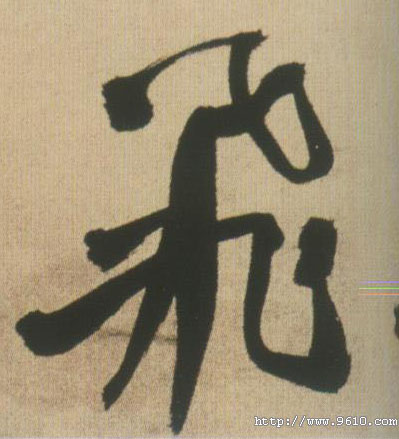 飛
http://www.9610.com